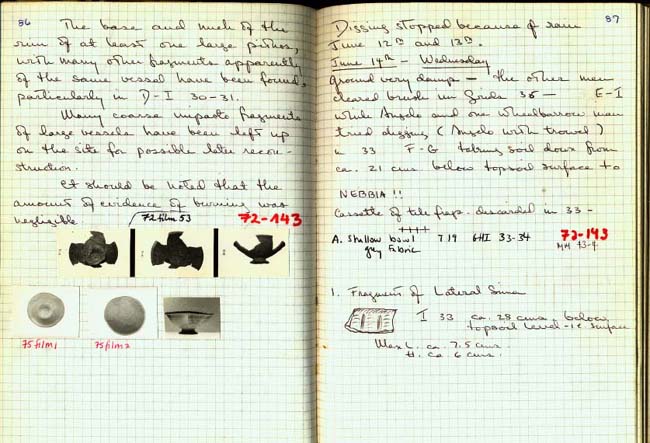 86
The base and much of the
rim of at least one large pithos,
with many other fragments apparently
of the same vessel have been found,
particularly in D-I 30-31.
Many coarse impasto fragments
of large vessels have been left up
on the site for possible later recon-
struction.
It should be noted that the
amount of evidence of burning was
negligible
72 film 53
72-143
75 film 1
75 film 2
87
Digging stopped because of rain
June 12th and 13th.
June 14th - Wednesday
ground very damp - the other men
cleared brush in Grids 36 - E-I
while Angelo and one wheelbarrow man
tried digging (Angelo with trowel)
in 33 F-G taking soil down from
ca. 21 cms. below topsoil surface to
NEBBIA!!
Cassette of tile frags. discarded in 33 -
++++
A. Shallow bowl 7.19 GHI 33-34 72-143
grey Fabric
1. Fragment of Lateral Sima
I 33 ca. 28 cms. below
topsoil level - i.e. surface
Max L. ca. 7.5 cms.
H. ca. 6 cms.